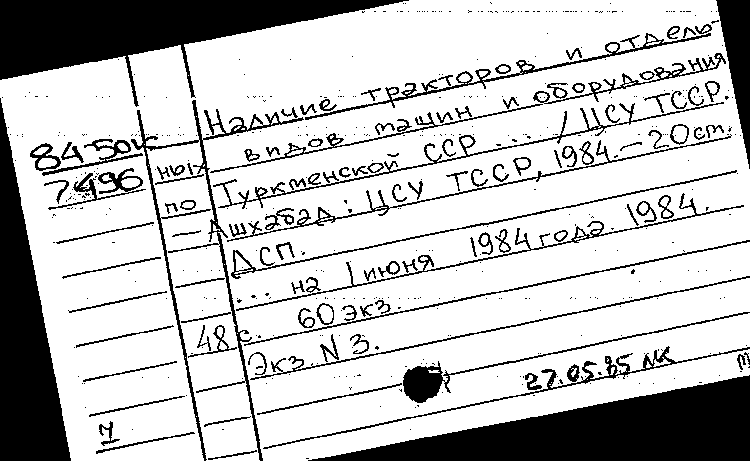 Наличие тракторов и отдель-
84-50к
7496
ных видов машин и оборудования
по Туркменской ССР ... / ЦСУ ТССР.
— Ашхабад: ЦСУ ТССР, 1984. — 20 см.
ДСП.
... на 1 июня 1984 года. 1984.
48 с. 60 экз.
Экз. N 3.
27.05.85